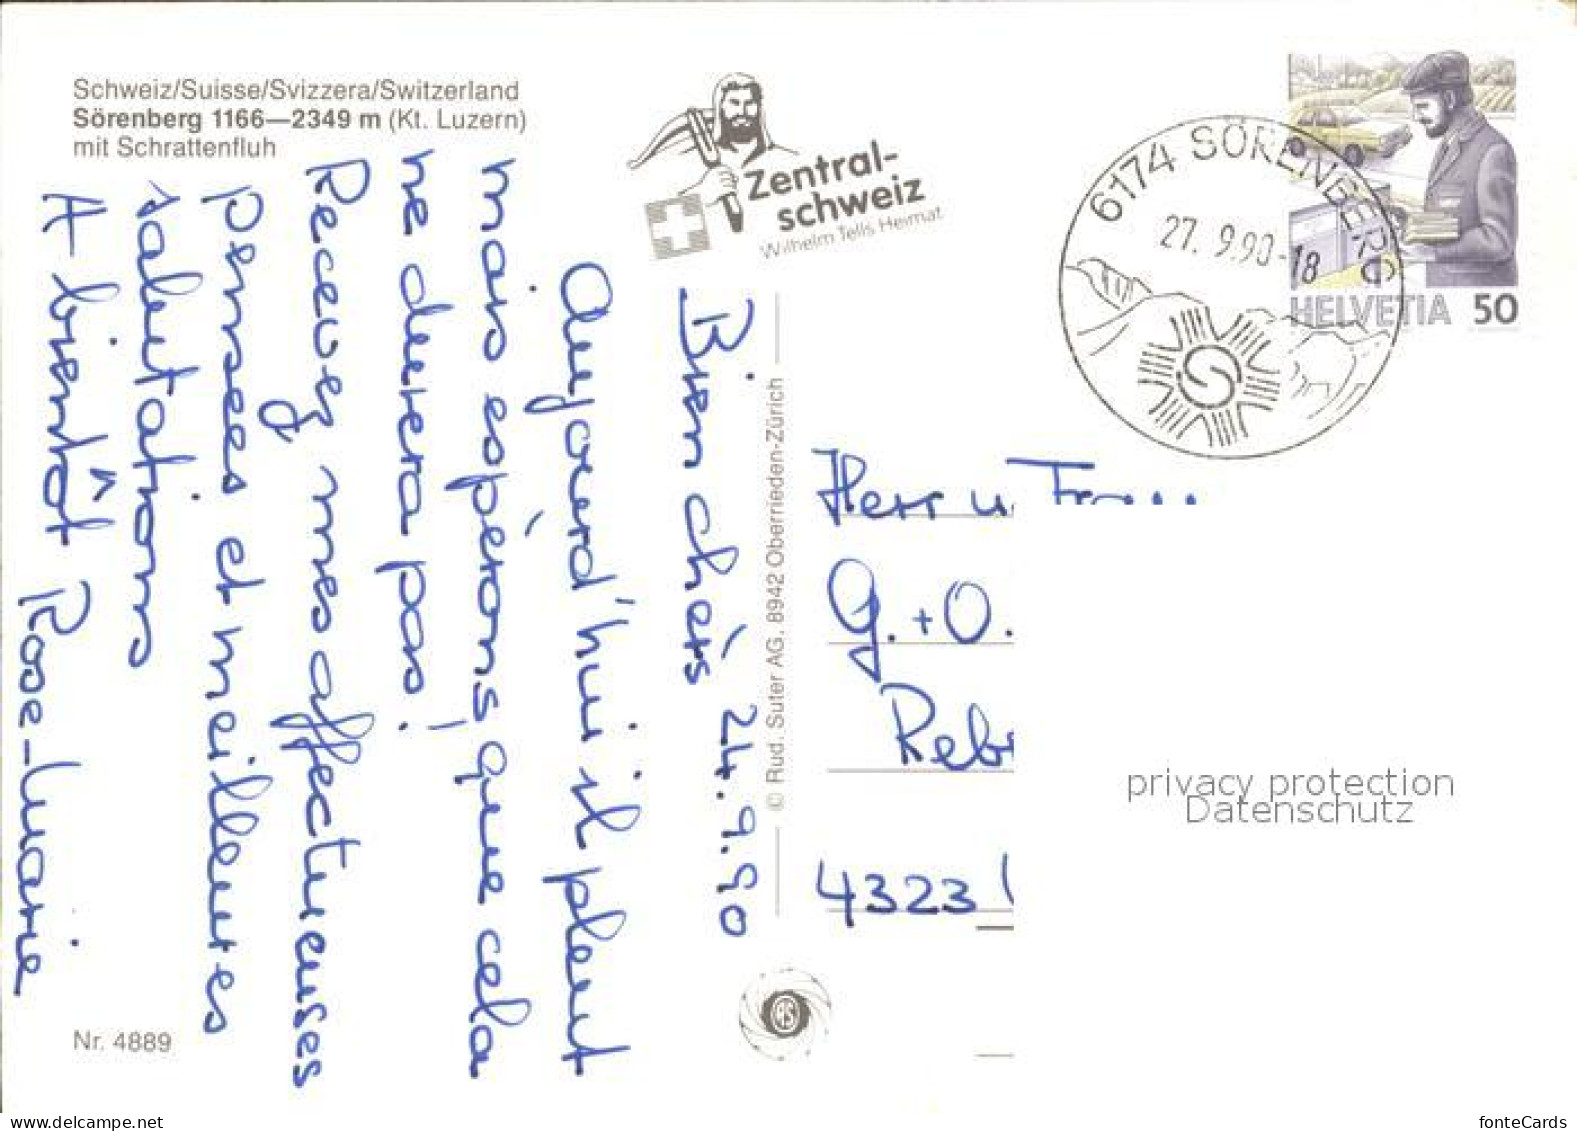 Schweiz/Suisse/Svizzera/Switzerland
Sörenberg 1166—2349 m (Kt. Luzern)
mit Schrattenfluh
Zentral-
schweiz
Wilhelm Tells Heimat
6174 SÖRENBERG
27. 9.90-18
HELVETIA 50
Bien chers 24.9.90
Aujourd'hui il pleut
mais espérons que cela
ne durera pas!
Recevez mes affectueuses
pensées et meilleures
salutations
A-bientôt Rose-Marie
© Rud. Suter AG, 8942 Oberrieden-Zürich
Herr u.
G. + O.
4323
privacy protection
Datenschutz
Nr. 4889
www.delcampe.net
fonteCards